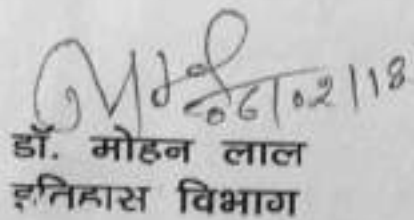 06/02/18
डॉ. मोहन लाल
इतिहास विभाग